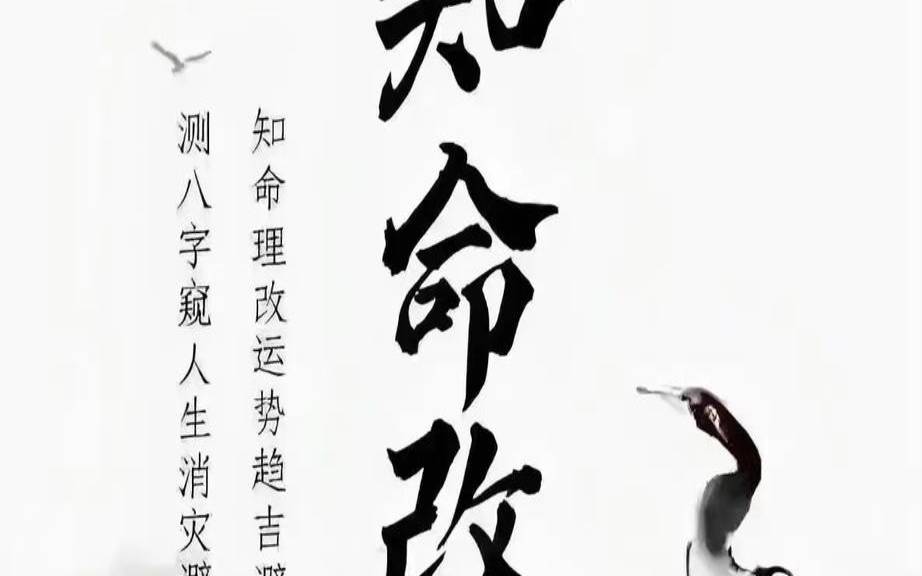 知命改
知命理改运势趋吉避
测八字窥人生消灾避